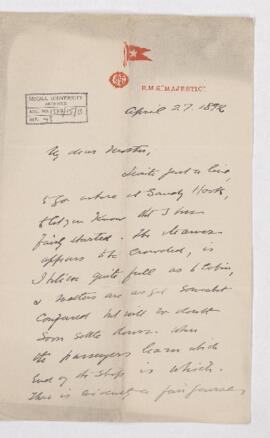 R.M.S. "MAJESTIC"
McGILL UNIVERSITY
ARCHIVES
ACC. NO.
REF.
April 27. 1892
My dear Mother,
Write just a line,
to go ashore at Sandy Hook,
to let you know that I have
fairly started. The steamer
appears to be crowded, is
I believe quite full as to cabin,
& matters are as yet somewhat
confused but will no doubt
soon settle down when
the passengers learn which
end of the ship is which.
There is evidently a fair